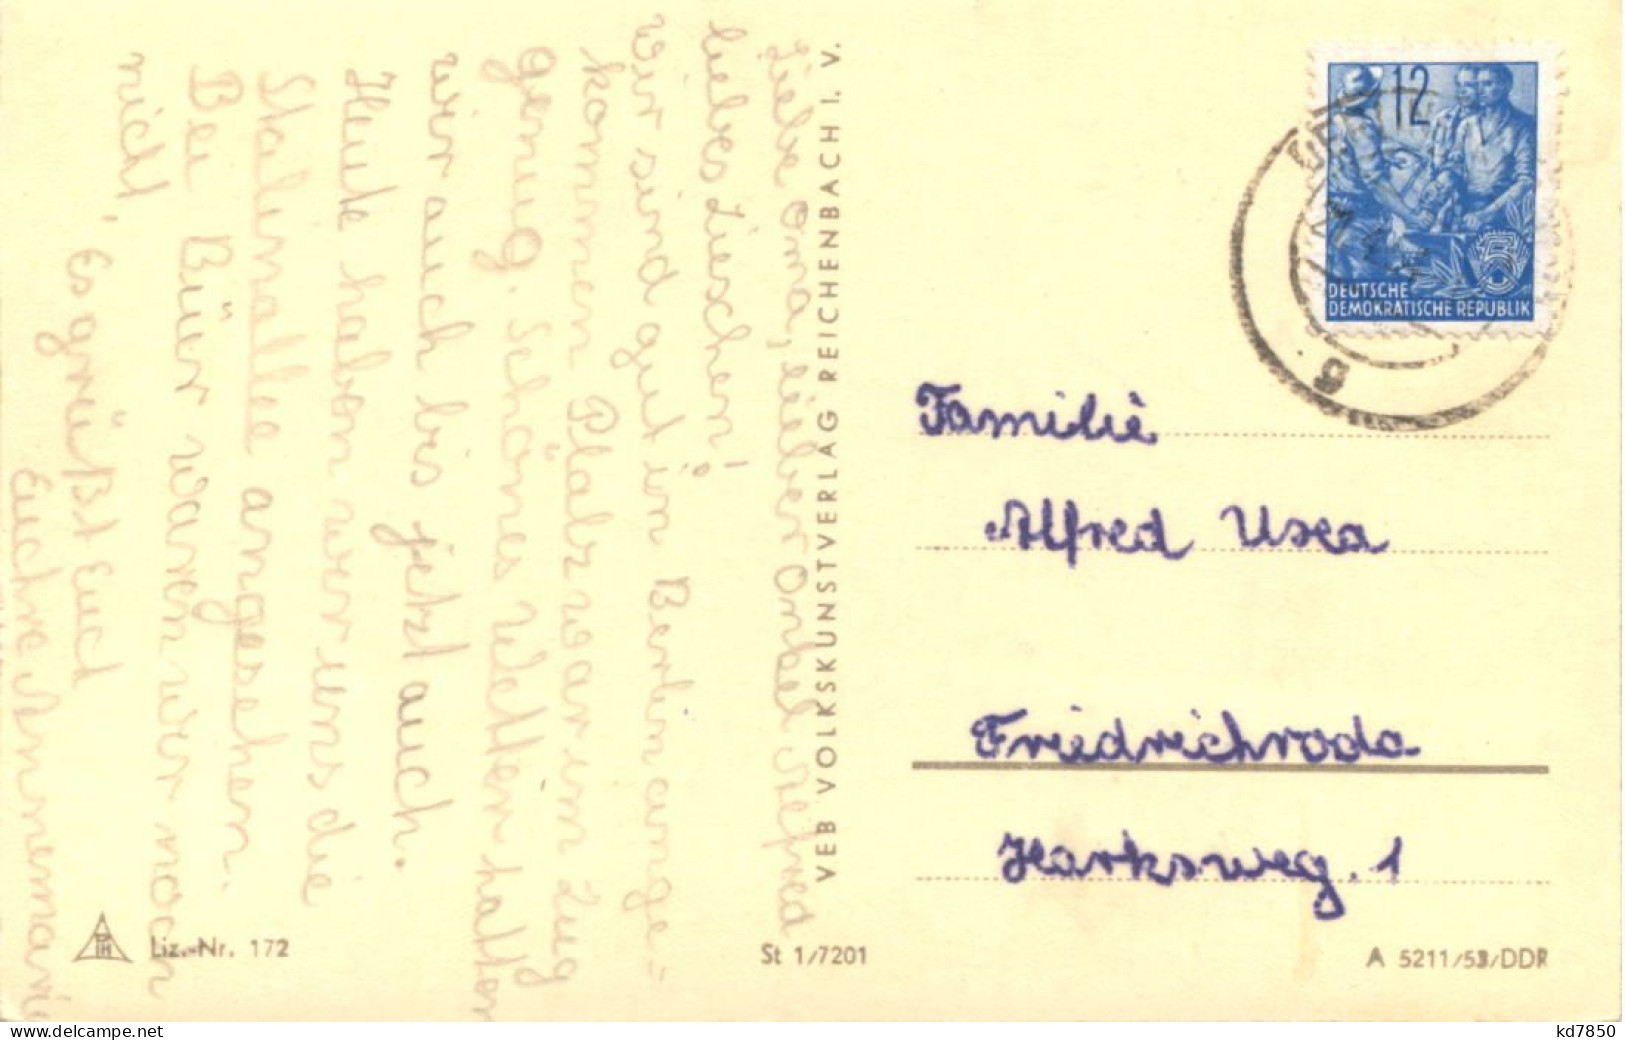 Liebe Oma, lieber Onkel Alfred
liebes Lieschen!
Wir sind gut in Berlin ange=
kommen Platz war im Zug
genug. Schönes Wetter hatten
wir auch bis jetzt auch.
Heute haben wir uns die
Stalinallee angesehen.
Bei Bür waren wir noch
nicht, Es grüßt Euch
Euchre Annemarie
VEB VOLKSKUNSTVERLAG REICHENBACH I. V.
12
DEUTSCHE
DEMOKRATISCHE REPUBLIK
g
Familie
Alfred Usea
Friedrichroda
Harksweg. 1
Liz.-Nr. 172
St 1/7201
A 5211/53/DDR
www.delcampe.net
kd7850